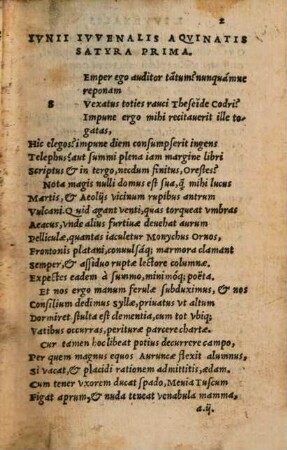 2
IVNII IVVENALIS AQVINATIS
SATYRA PRIMA.
Emper ego auditor tãtum? nunquámue
reponam
S Vexatus toties rauci Theseide Codri?
Impune ergo mihi recitauerit ille togatas,
Hic elegos? impune diem consumpserit ingens
Telephus? aut summi plena iam margine libri
Scriptus & in tergo, necdum finitus, Orestes?
Nota magis nulli domus est sua, q̃ mihi lucus
Martis, & Aeolijs vicinum rupibus antrum
Vulcani. Quid agant venti, quas torqueat vmbras
Aeacus, vnde alius furtiuæ deuehat aurum
Pelliculæ, quantas iaculetur Monychus Ornos,
Frontonis platani, conuulsáq; marmora clamant
Semper, & assiduo ruptæ lectore columnæ.
Expectes eadem à summo, minimóq; poëta.
Et nos ergo manum ferulæ subduximus, & nos
Consilium dedimus Syllæ, priuatus vt altum
Dormiret. stulta est clementia, cum tot vbiq;
Vatibus occurras, perituræ parcere chartæ.
Cur tamen hoc libeat potius decurrere campo,
Per quem magnus equos Auruncæ flexit alumnus,
Si vacat, & placidi rationem admittitis, ædam.
Cum tener vxorem ducat spado, Meuia Tuscum
Figat aprum, & nuda teneat venabula mamma,
a.ij.